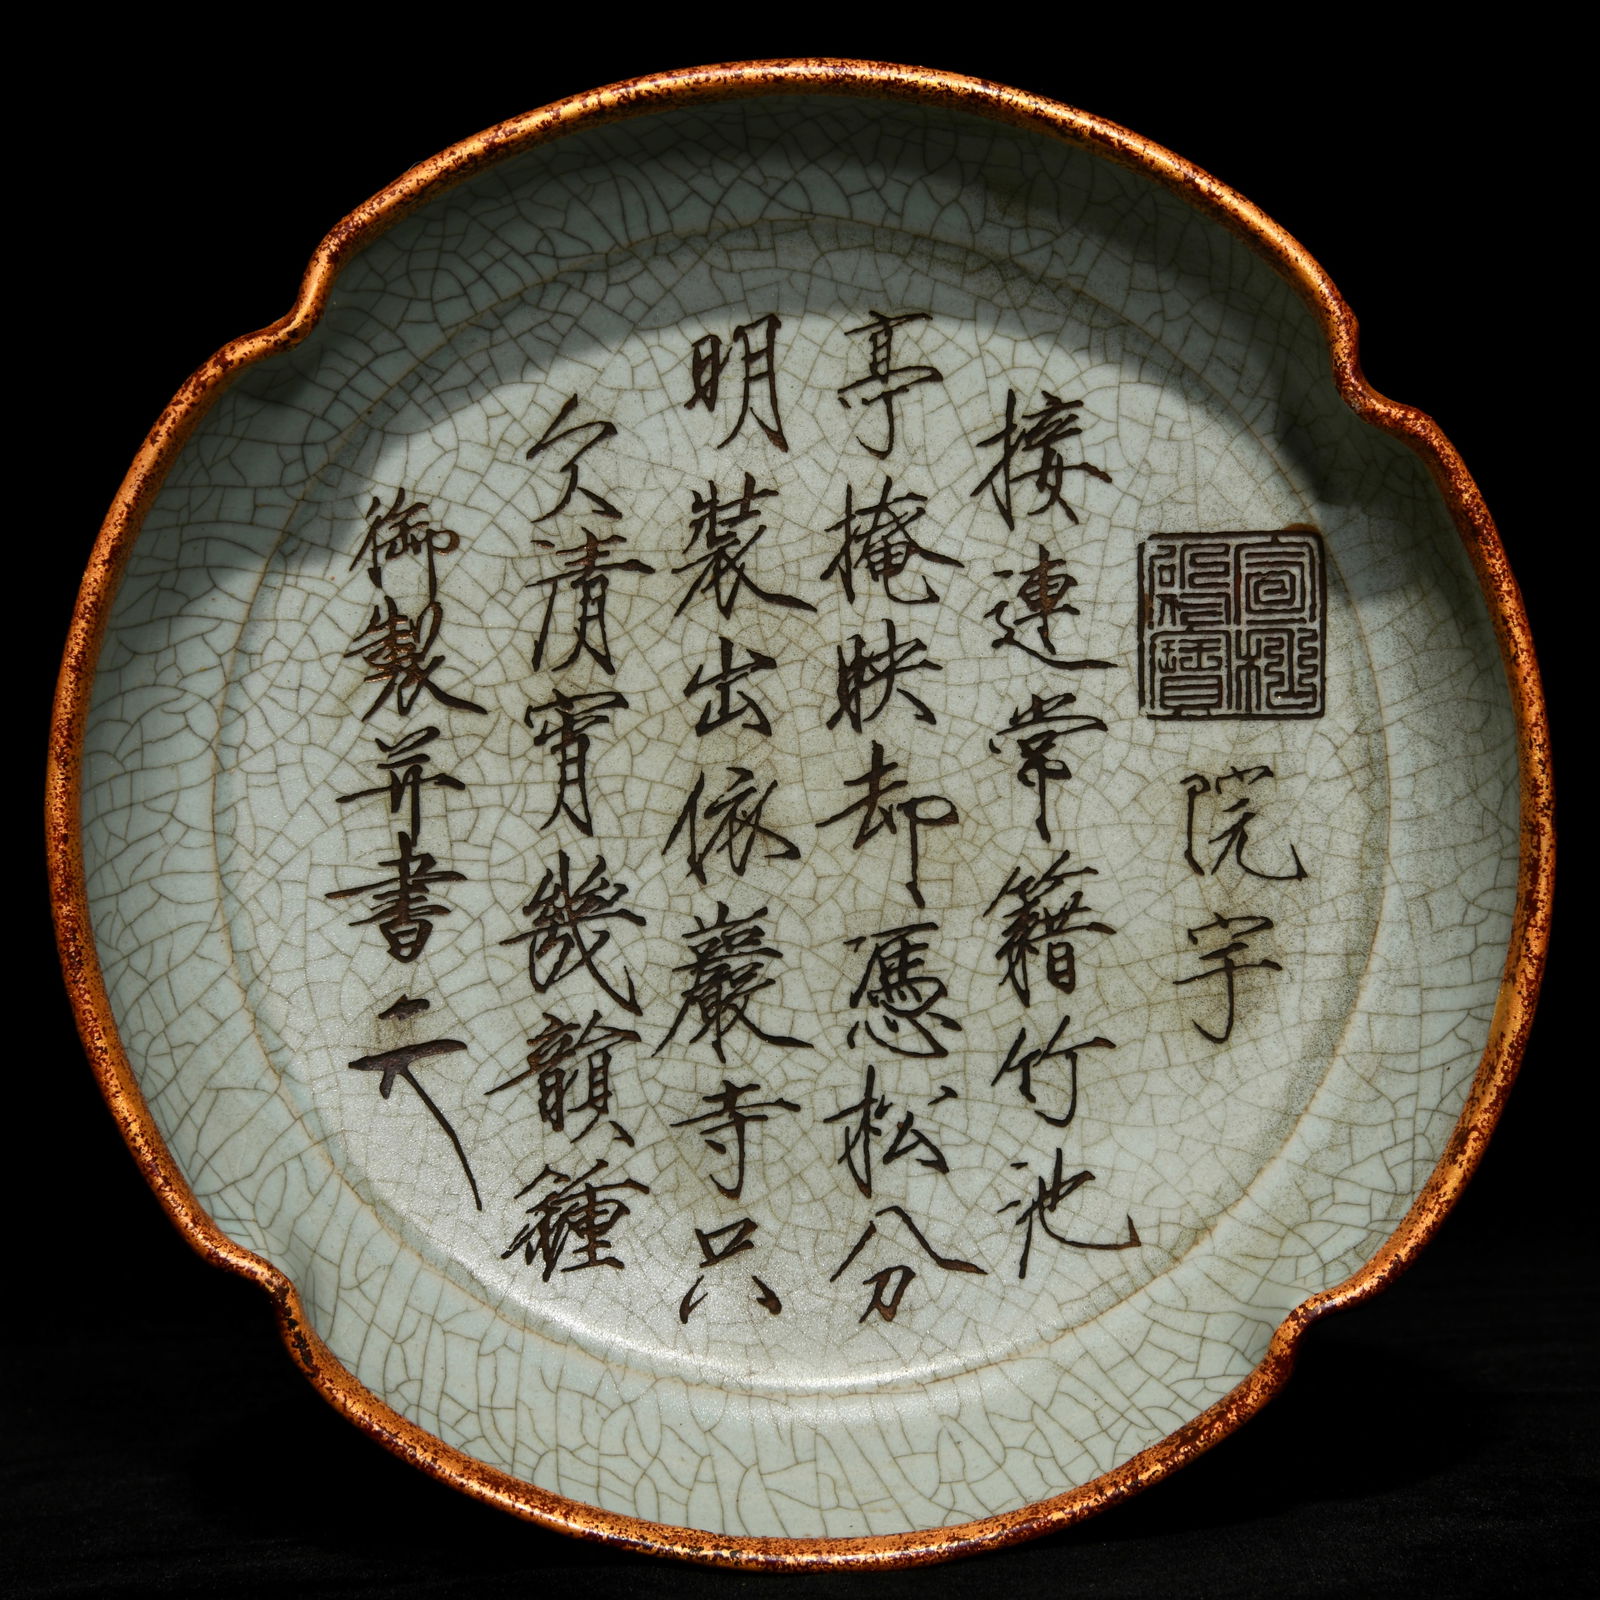 院宇
接連常籍竹池
亭掩映却憑松分
明裝出依巖寺只
欠清宵幾韻鍾
御製并書